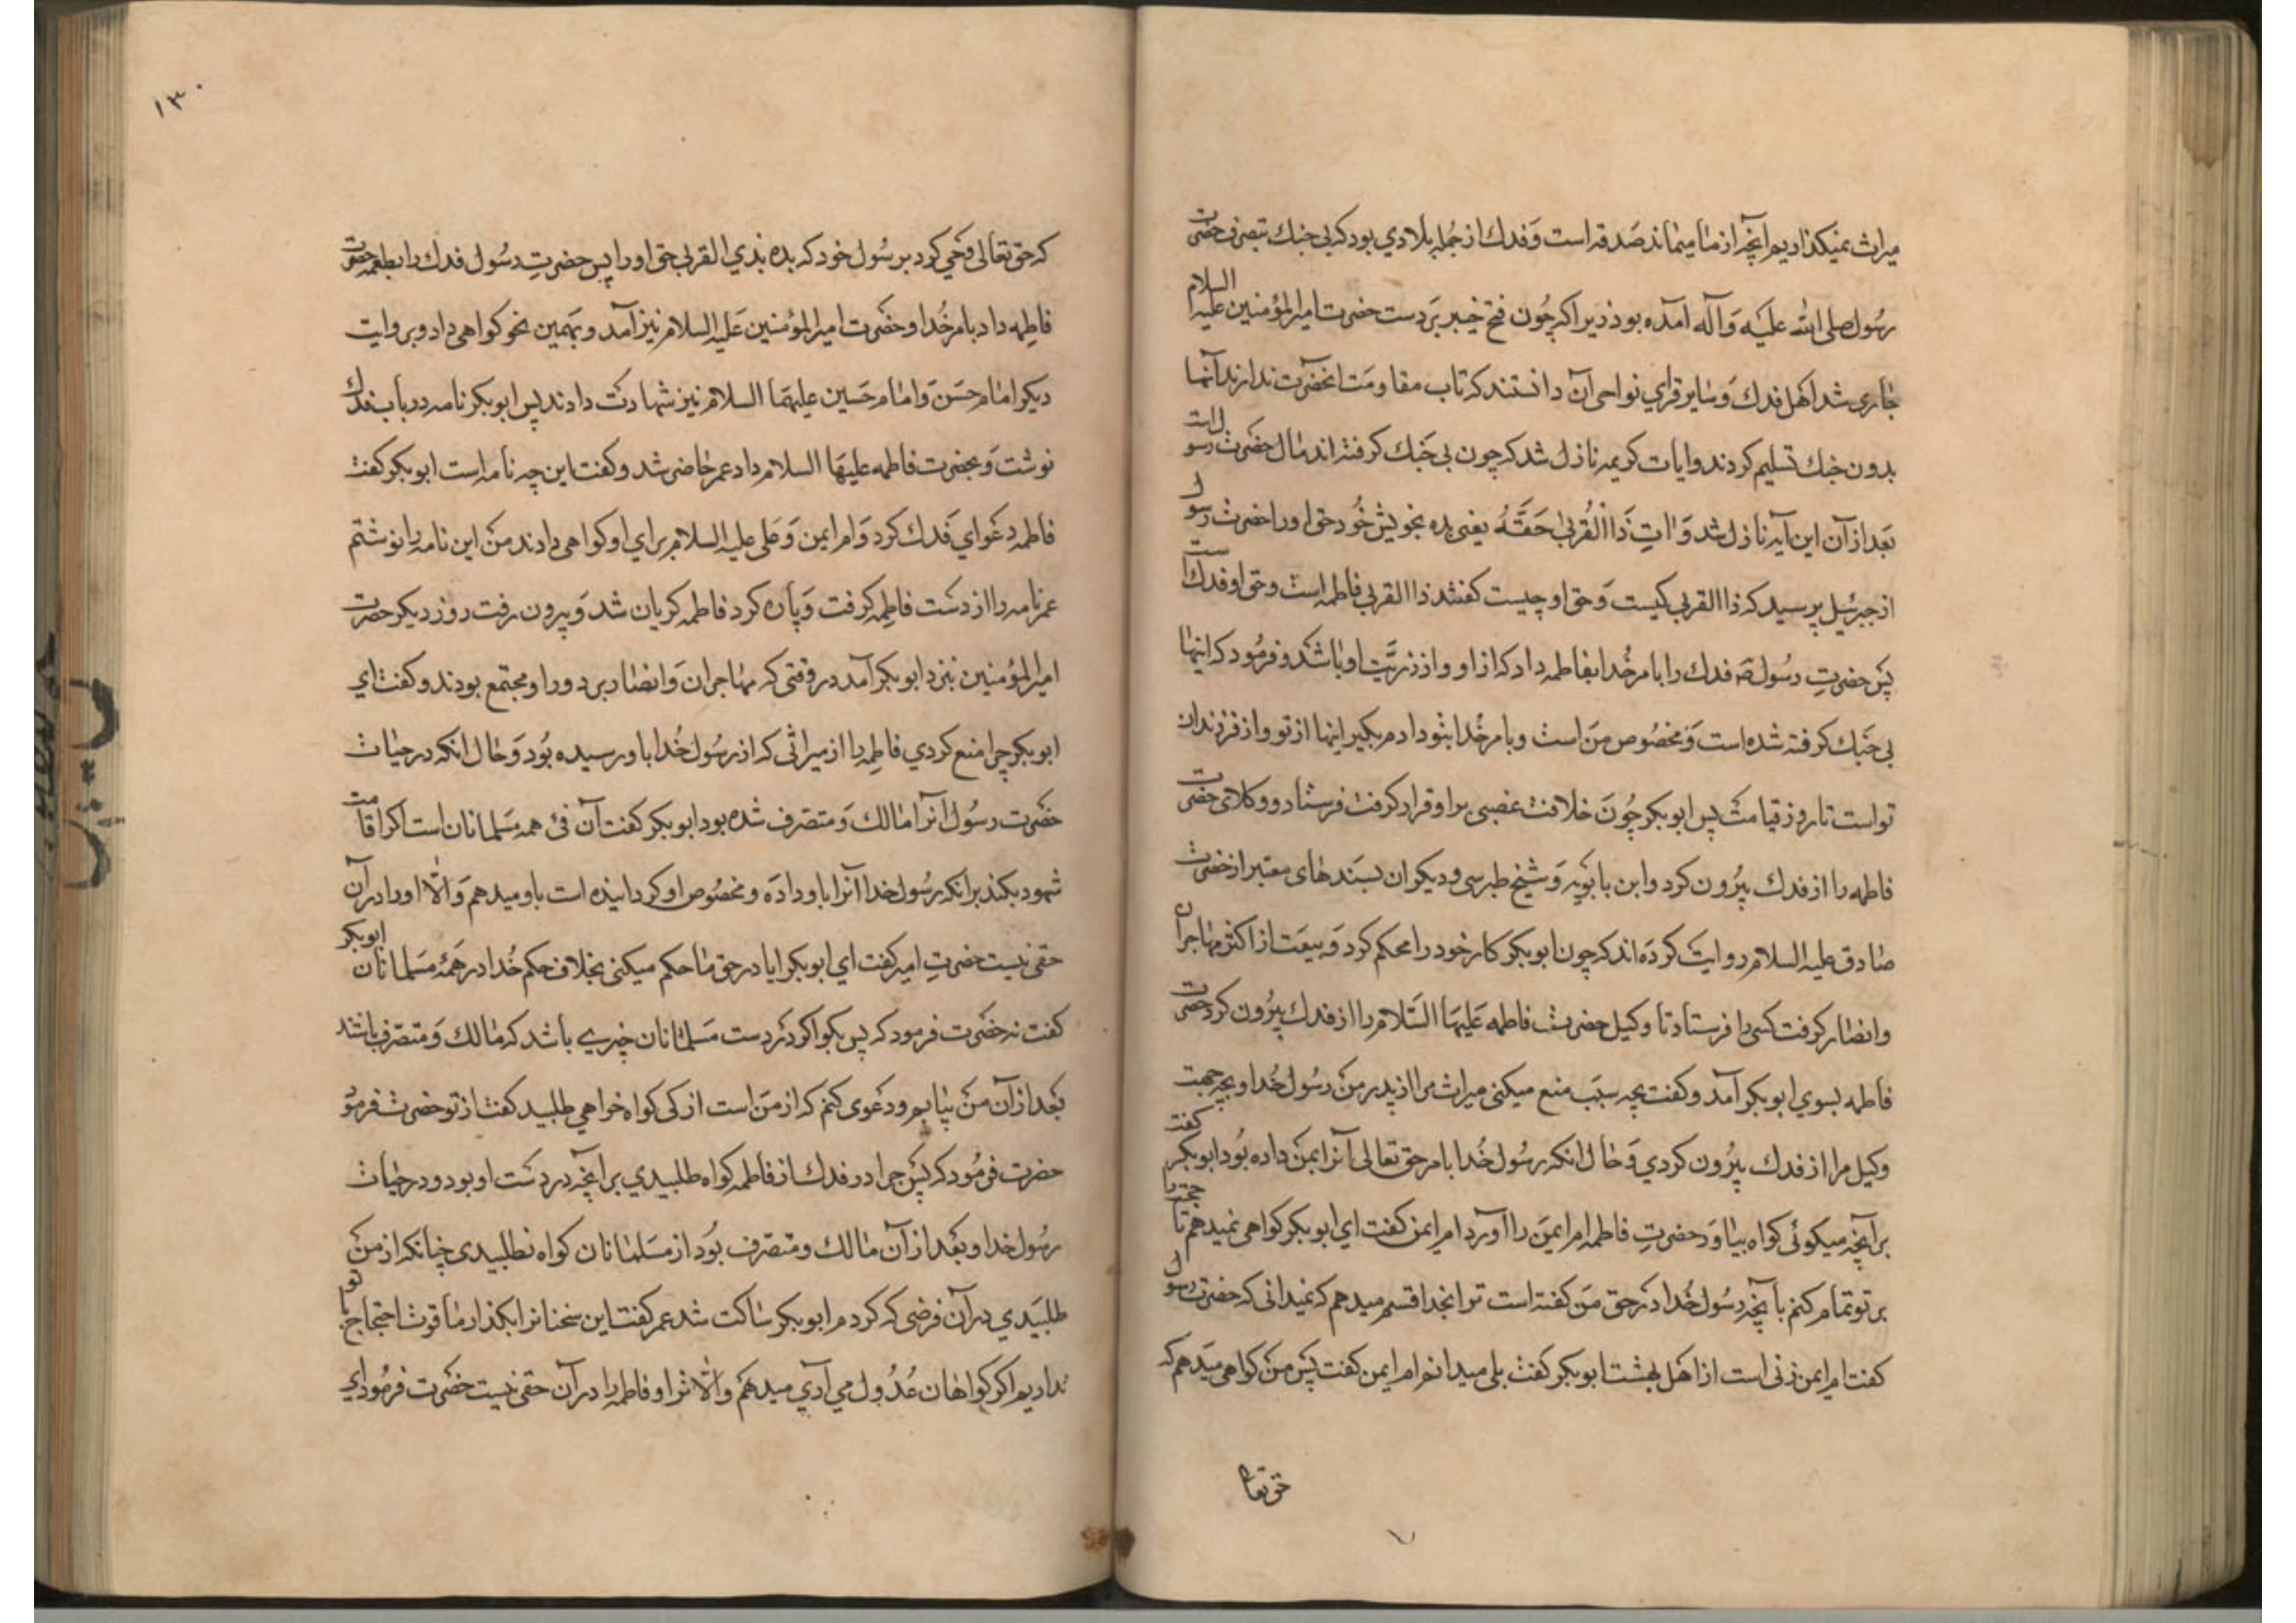 میراث نمیگذاریم انچه از ما میماند صدقه است وَفدك از جُمله بلادي بود که بی جنك بتصرف حضرت
رسُول صلی الله علیَه وَآله آمده بود زیرا که چُون فتح خیبر بَردست حضرت امیرالمؤمنین علیه السلام
جاری شد اهل فدك وَسایر قراي نواحی آن دانستند که تاب مقاومَت انحضرت ندارند آنها
بدون جنك تسلیم کردند وایات کریمه نازل شد که چون بی جَنك کرفته اند مال حضرت رسول است
بَعد از آن این آیه نازل شد وَاٰتِ ذَا الْقُربیٰ حَقَّهُ یعنی بده بخویش خُود حق او را حضرت رسول
از جبرئیل پرسید که ذا القربی کیست وَحق او چیست کفتند ذا القربی فاطمه است وحق او فدك است
پس حضرتِ رسُول صَ فدك را بامر خُدا بفاطمه داد که از او واز ذریَّت او باشد و فرمُود که اینها
بی جَنك کرفته شده است وَمخصُوص مَن است وبامر خُدا بتو دادم بکیر اینها از تو واز فرزندان
تواست تا روز قیامت پس ابوبکر چُونَ خلافت غصبی برا وقرار کرفت فرستاد ووکلای حضرت
فاطمه را از فدك بیرُون کرد وابن بابَویه وَشیخ طبرسی ودیکران بسَندهای معتبر از حضرت
صادق علیه السلام روایت کردَه اند که چون ابوبکر کار خود را محکم کرد وَبیعَت از اکثر مهاجران
وانصار کرفت کسی را فرستاد تا وکیل حضرت فاطمه عَلیهَا السَّلام را از فدك بیرُون کرد حضرت
فاطمه بسوي ابوبکر آمد وکفت بچه سبَب منع میکنی میراث مرا از پدر من رسُول خُدا وبچه جهت
وکیل مرا از فدك بیرُون کردي وَحال انکه رسُول خُدا بامر حق تعالی آنرا بمن داده بُود ابوبکر کفت
برآنچه میکوئی کواه بیاوَر حضرتِ فاطمه ام ایمَن را آورد ام ایمن کفت ای ابوبکر کواهی نمیدهم تا حجت را
بر تو تمام کنم بآنچه رسُول خُدا دَر حق مَن کفته است ترا بخدا قسم میدهم که نمیدانی که حضرت رسول
کفت ام ایمن زنی است از اهل بهشت ابوبکر کفت بلی میدانم ام ایمن کفت پس من کواهی میَدهم که
حق تعا
۱۳۰
که حق تعالی وَحي کرد بر رسُول خود که بده بذي القربی حق او را پس حضرتِ رسُول فدك را بطعمه حضرت
فاطِمه داد بامر خُدا وحضَرت امیرالمؤمنین عَلیه السلام نیز آمد وبهَمین نحو کواهی داد وبروایت
دیکر امام حسَن وَامام حسَین علیهمَا السلام نیز شهادت دادند پس ابوبکر نامه در باب فدك
نوشت وَبحضرت فاطمه علیهَا السلام داد عمر حاضر شد وکفت این چه نامه است ابوبکر کفت
فاطمه دعَواي فَدك کرد وَام ایمن وَعَلی علیه السلام براي او کواهی دادند من این نامه را نوشتم
عمر نامه را از دسَت فاطِمه کرفت وَپاره کرد فاطمه کریان شد وَبیرون رفت روز دیکر حضرت
امیرالمؤمنین بنزد ابوبکر آمد در وقتی که مهاجران وَانصار بر دور او مجتمع بودند وکفت اي
ابوبکر چرا منع کردي فاطِمه را از میراثی که از رسُول خُدا باو رسیده بُود وَحال انکه در حیات
حضَرت رسُول انرا مالك وَمتصَرف شده بود ابوبکر کفت آن فئ همه مسَلمانان است اکر اقامت
شهود بکند برانکه رسُول خدا آنرا باو دادَه ومخصُوص او کردانیده است باو میدهم وَالّا او را در آن
حقی نیست حضرتِ امیر کفت اي ابوبکر ایا در حق ما حکم میکنی بخلاف حکم خُدا در همَهٔ مسَلمانان ابوبکر
کفت نه حضَرت فرمود که پس بکو اکر دَر دست مسَلمانان چیزي باشد که مالك وَمتصَرف باشند
بَعد از آن من بیایم ودعَوی کنم که از مَن است از کی کواه خواهي طلبید کفت از تو حضرت فرمود
حضرت فرمُود که پس چرا در فدك از فاطمه کواه طلبیدي برانچه در دسَت او بود ودر حیات
رسُول خدا وبَعد از آن مالك ومتصَرف بُود از مسَلمانان کواه نطلبیدی چنانکه از من
طلبَیدي در آن فرضی که کردم ابوبکر ساکت شد عمر کفت این سخنانرا بکذار ما قوت احتجاج با تو
نداریم اکر کواهان عُدُول مي آدي میدهَم وَالّا ترا وفاطمه را در آن حقی نیست حضَرت فرمُود اي